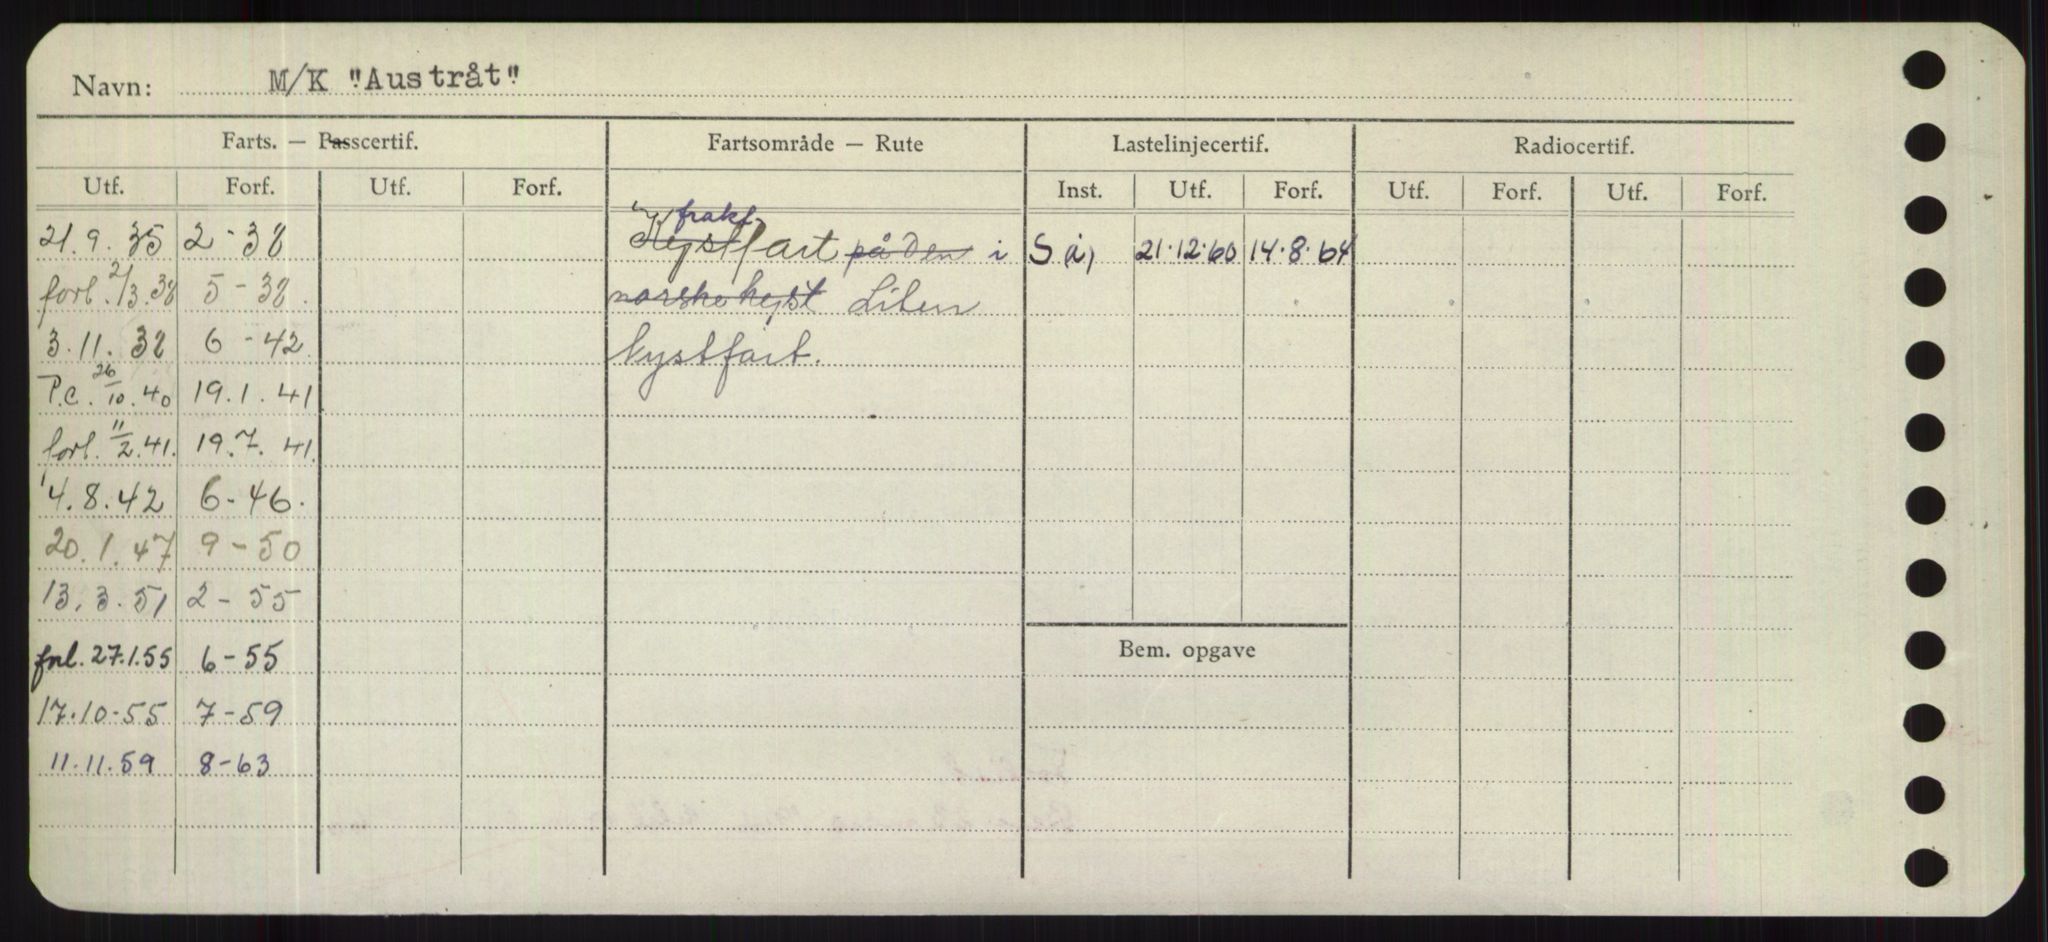 Navn: M/K "Austråt"
Farts. — Passcertif. Fartsområde — Rute Lastelinjecertif. Radiocertif.
Utf. Forf. Utf. Forf. Inst. Utf. Forf. Utf. Forf. Utf. Forf.
frakt
21.9.35 2-38 Kystfart på den i S 21.12.60 14.8.64
forl. 21/3.38 5-38. norske kyst Liten
3.11.38 6-42 kystfart.
P.c. 26/10.40 19.1.41
forl. 11/2.41. 19.7.41.
4.8.42 6-46.
20.1.47 9-50
13.3.51 2-55
forl. 27.1.55 6-55
Bem. opgave
17.10-55 7-59
11.11.59 8-63